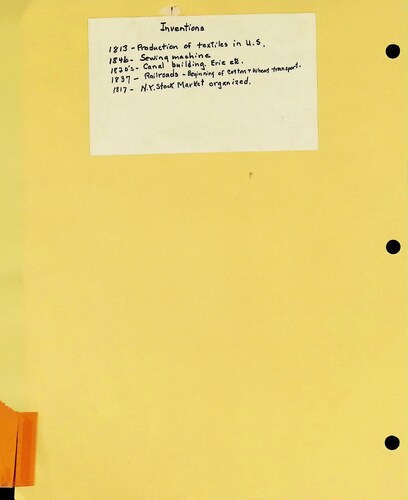 Inventions
1813 - Production of textiles in U.S.
1846 - Sewing machine
1820's - Canal building. Erie etc.
1837 - Railroads - Beginning of cotton + wheat transport.
1817 - N.Y. Stock Market organized.